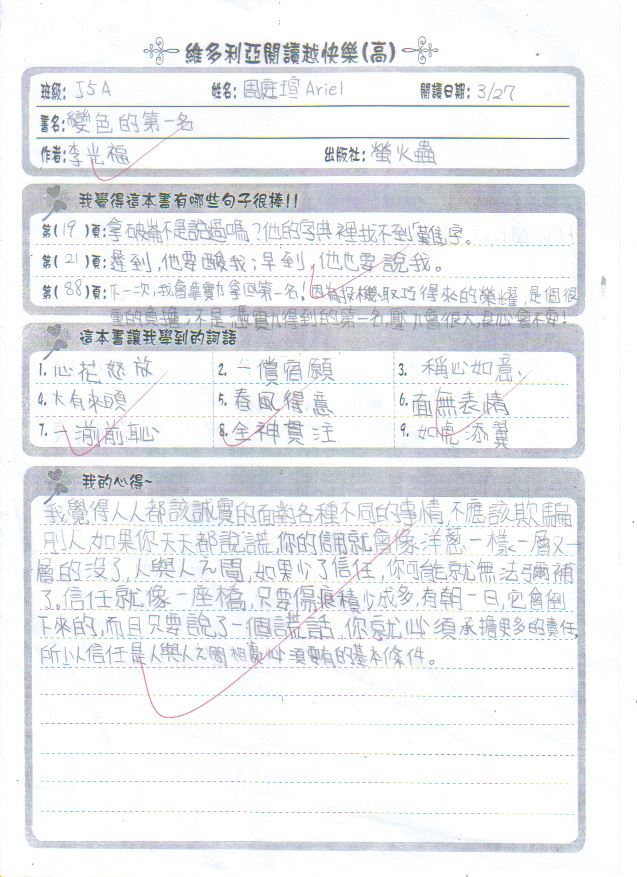 維多利亞閱讀越快樂(高)
班級: J5A 姓名: 周庭瑄 Ariel 閱讀日期: 3/27
書名: 變色的第一名
作者: 李光福 出版社: 螢火蟲
我覺得這本書有哪些句子很棒!!
第(19)頁: 拿破崙不是說過嗎?他的字典裡找不到「難」字。
第(21)頁: 遲到,他要酸我;早到,他也要說我。
第(88)頁: 下一次,我會靠實力拿回第一名!因為投機取巧得來的榮耀,是個很
重的負擔;不是憑實力得到的第一名壓力會很大,良心會不安!
這本書讓我學到的詞語
1. 心花怒放 2. 一償宿願 3. 稱心如意
4. 大有來頭 5. 春風得意 6. 面無表情
7. 一湔前恥 8. 全神貫注 9. 如虎添翼
我的心得~
我覺得人人都該誠實的面對各種不同的事情,不應該欺騙
別人,如果你天天都說謊,你的信用就會像洋蔥一樣一層又一
層的沒了,人與人之間,如果少了信任,你可能就無法彌補
了。信任就像一座橋,只要傷痕積少成多,有朝一日,它會倒
下來的,而且只要說了一個謊話,你就必須承擔更多的責任,
所以信任是人與人之間相處必須要有的基本條件。